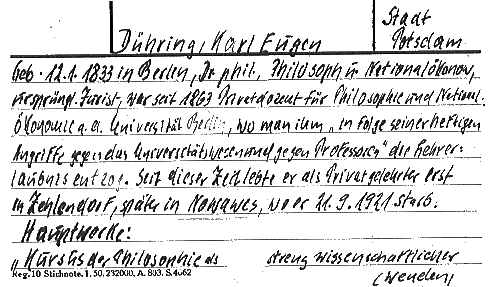 Dühring, Karl Eugen
Stadt
Potsdam
geb. 12.1.1833 in Berlin, Dr phil., Philosoph u. Nationalökonom,
ursprüngl. Jurist, war seit 1863 Privatdozent für Philosophie und National-
ökonomie a.d. Universität Berlin, wo man ihm „in Folge seiner heftigen
Angriffe gegen das Universitätswesen und gegen Professoren" die Lehrer-
laubnis entzog. Seit dieser Zeit lebte er als Privatgelehrter erst
in Zehlendorf, später in Nowawes, wo er 21.9.1921 starb.
Hauptwerke:
„Kursus der Philosophie als streng wissenschaftlicher
Reg. 10 Stichnote. 1. 50. 232000. A. 803. S. 4062
(wenden)